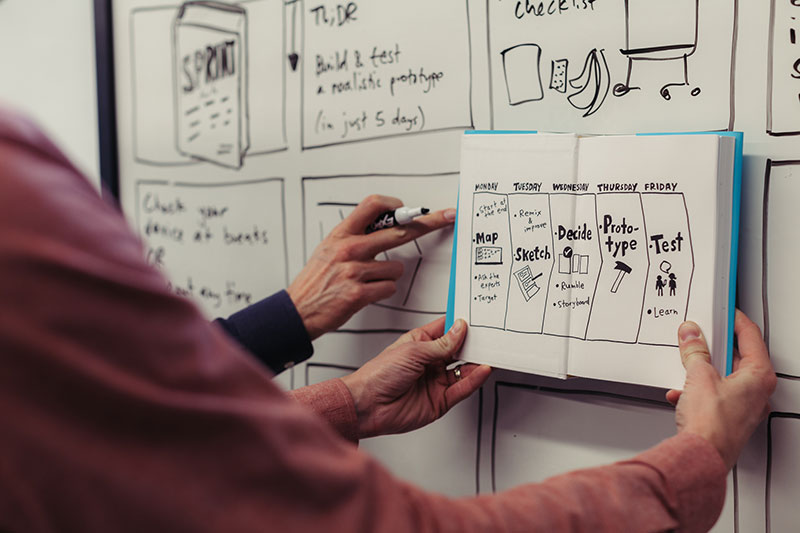 SPRINT
TL;DR
Build & test
a realistic prototype
(in just 5 days)
checklist
Check your
device at breaks
OR
any time
MONDAY
• Start at the end
• Map
• Ask the experts
• Target
TUESDAY
• Remix & improve
• Sketch
WEDNESDAY
• Decide
• Rumble
• Storyboard
THURSDAY
• Prototype
FRIDAY
• Test
• Learn